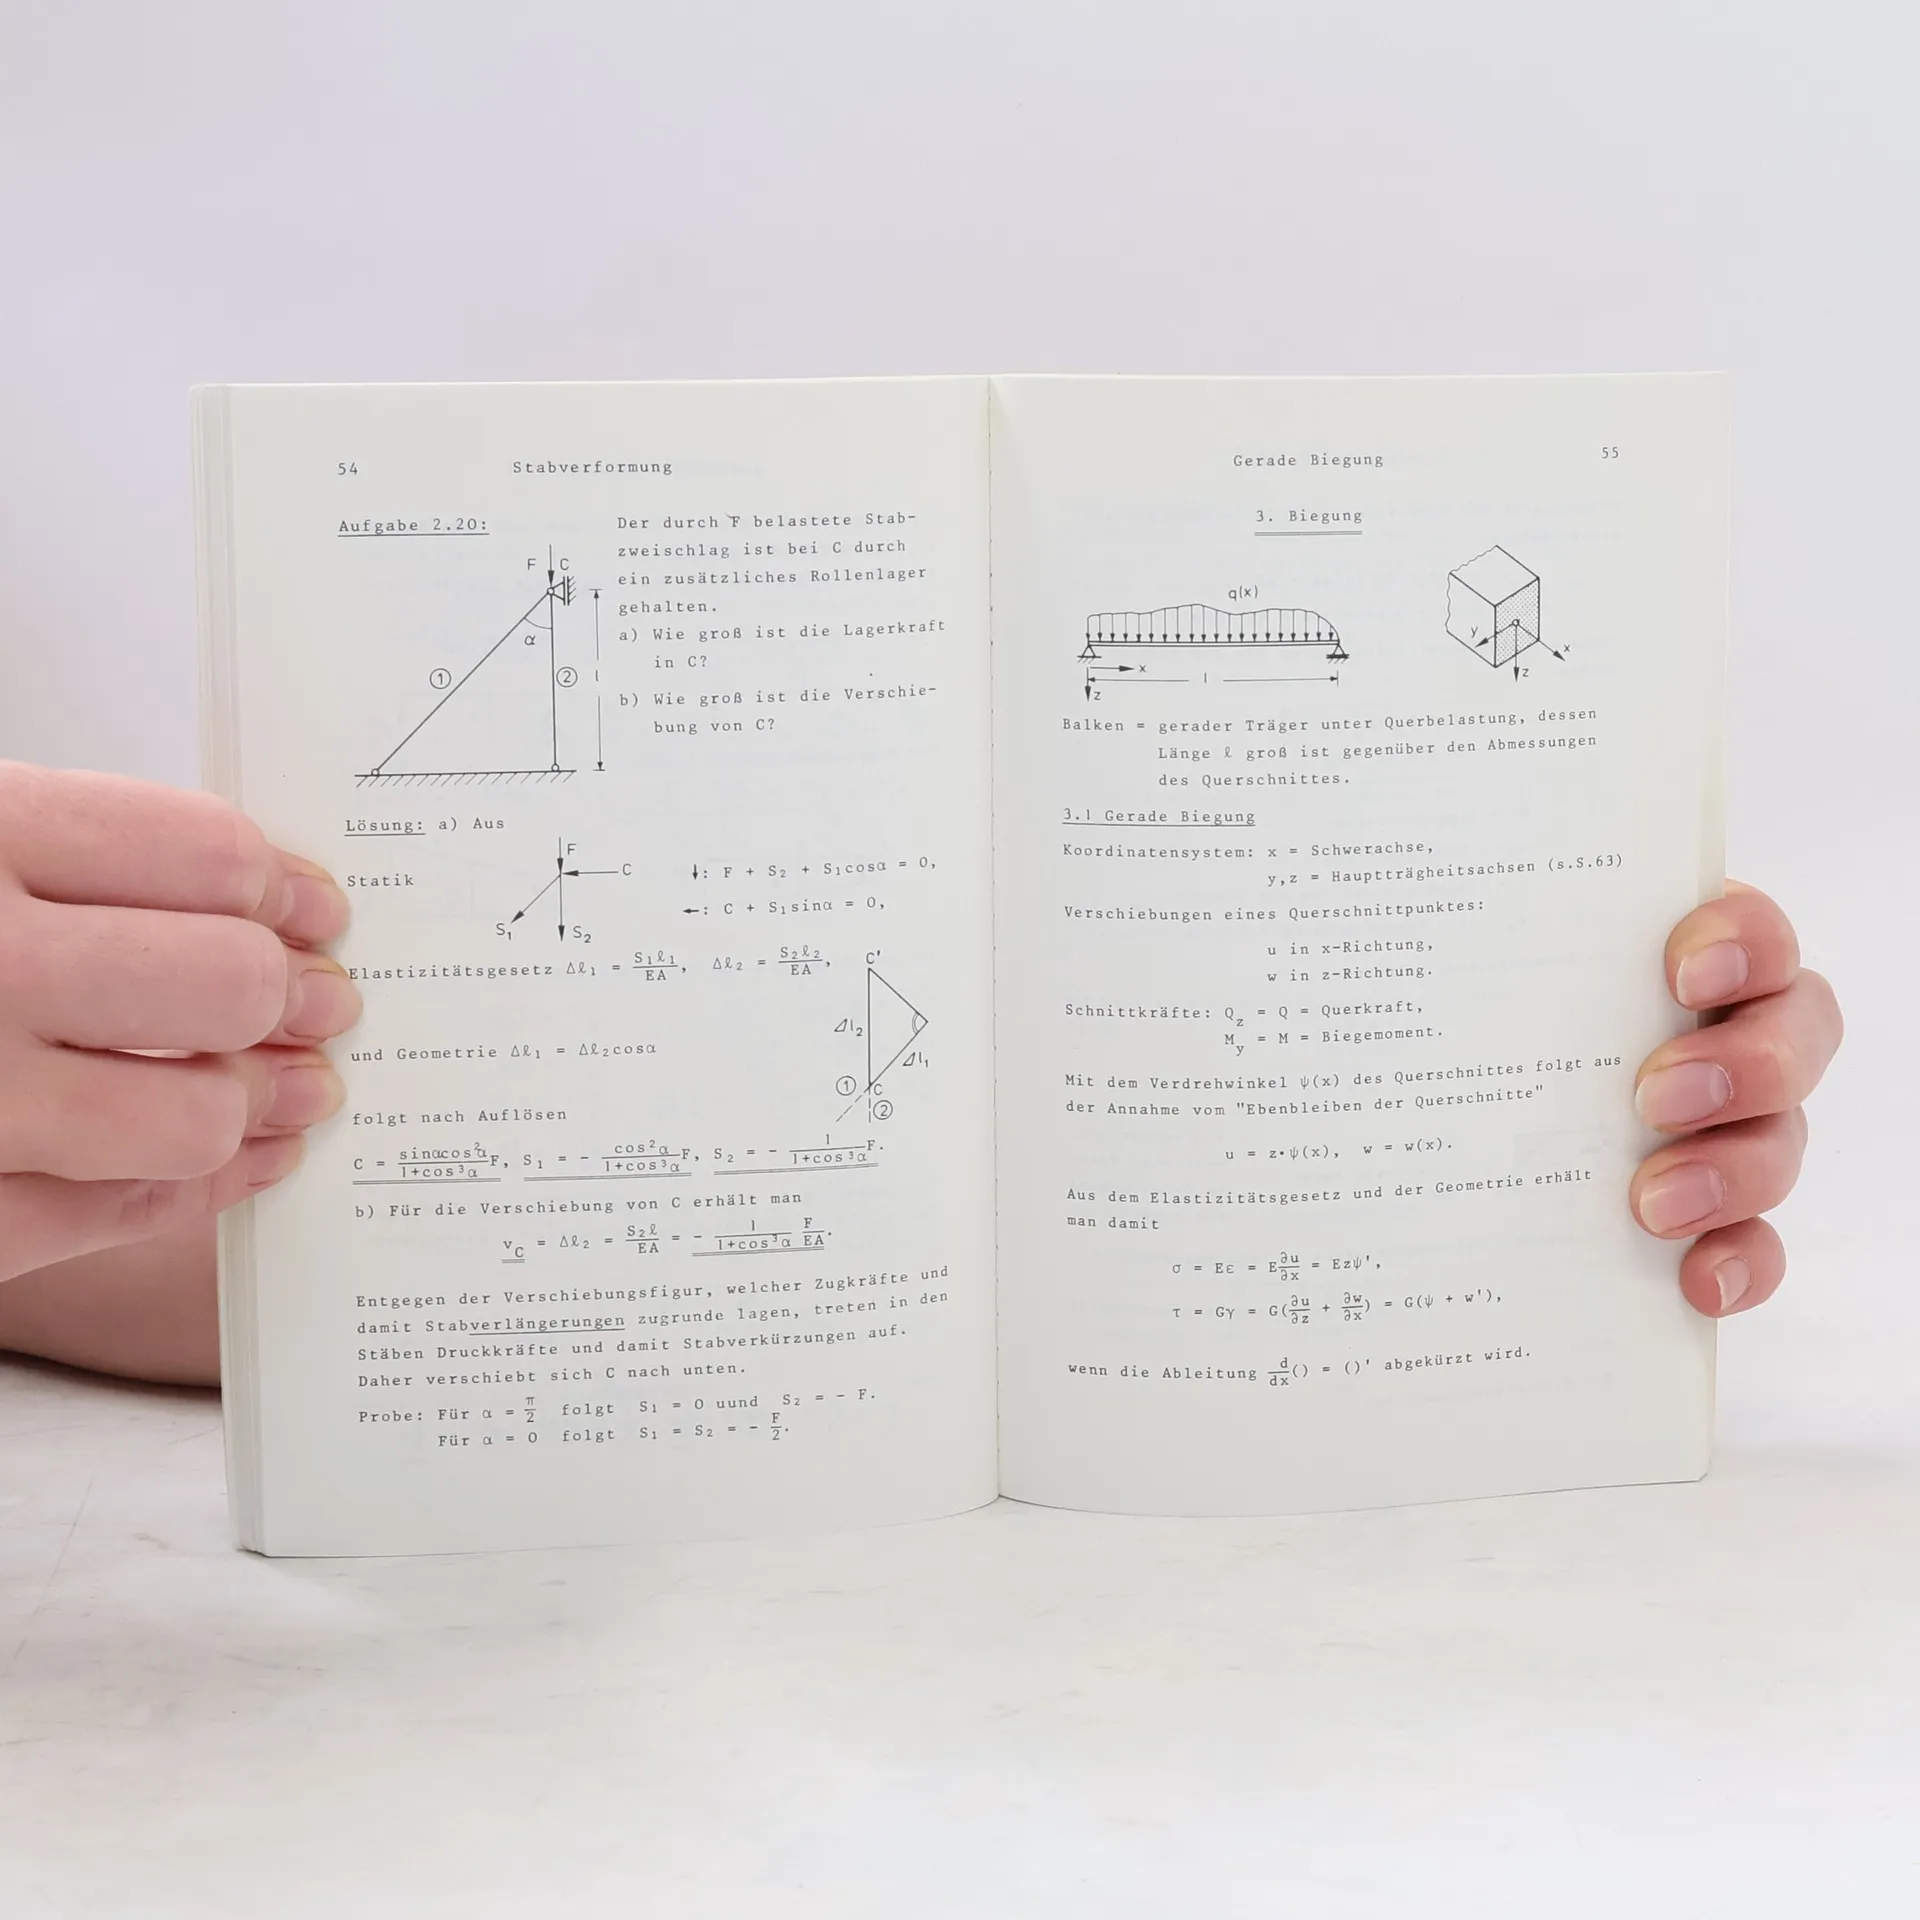 54 Stabverformung
Aufgabe 2.20:
F C
α
① ② l
Der durch F belastete Stab-
zweischlag ist bei C durch
ein zusätzliches Rollenlager
gehalten.
a) Wie groß ist die Lagerkraft
in C?
b) Wie groß ist die Verschie-
bung von C?
Lösung: a) Aus
F
C
Statik
S₁ S₂
↓: F + S₂ + S₁cosα = 0,
←: C + S₁sinα = 0,
Elastizitätsgesetz Δℓ₁ = S₁ℓ₁/EA, Δℓ₂ = S₂ℓ₂/EA,
C'
Δl₂
Δl₁
① C
②
und Geometrie Δℓ₁ = Δℓ₂cosα
folgt nach Auflösen
C = sinαcos²α/1+cos³α F, S₁ = - cos²α/1+cos³α F, S₂ = - 1/1+cos³α F.
b) Für die Verschiebung von C erhält man
v_C = Δℓ₂ = S₂ℓ/EA = - 1/1+cos³α F/EA.
Entgegen der Verschiebungsfigur, welcher Zugkräfte und
damit Stabverlängerungen zugrunde lagen, treten in den
Stäben Druckkräfte und damit Stabverkürzungen auf.
Daher verschiebt sich C nach unten.
Probe: Für α = π/2 folgt S₁ = 0 uund S₂ = - F.
Für α = 0 folgt S₁ = S₂ = - F/2.
Gerade Biegung 55
3. Biegung
q(x)
x
l
z
y
x
z
Balken = gerader Träger unter Querbelastung, dessen
Länge ℓ groß ist gegenüber den Abmessungen
des Querschnittes.
3.1 Gerade Biegung
Koordinatensystem: x = Schwerachse,
y,z = Hauptträgheitsachsen (s.S.63)
Verschiebungen eines Querschnittpunktes:
u in x-Richtung,
w in z-Richtung.
Schnittkräfte: Q_z = Q = Querkraft,
M_y = M = Biegemoment.
Mit dem Verdrehwinkel ψ(x) des Querschnittes folgt aus
der Annahme vom "Ebenbleiben der Querschnitte"
u = z·ψ(x), w = w(x).
Aus dem Elastizitätsgesetz und der Geometrie erhält
man damit
σ = Eε = E∂u/∂x = Ezψ',
τ = Gγ = G(∂u/∂z + ∂w/∂x) = G(ψ + w'),
wenn die Ableitung d/dx() = ()' abgekürzt wird.